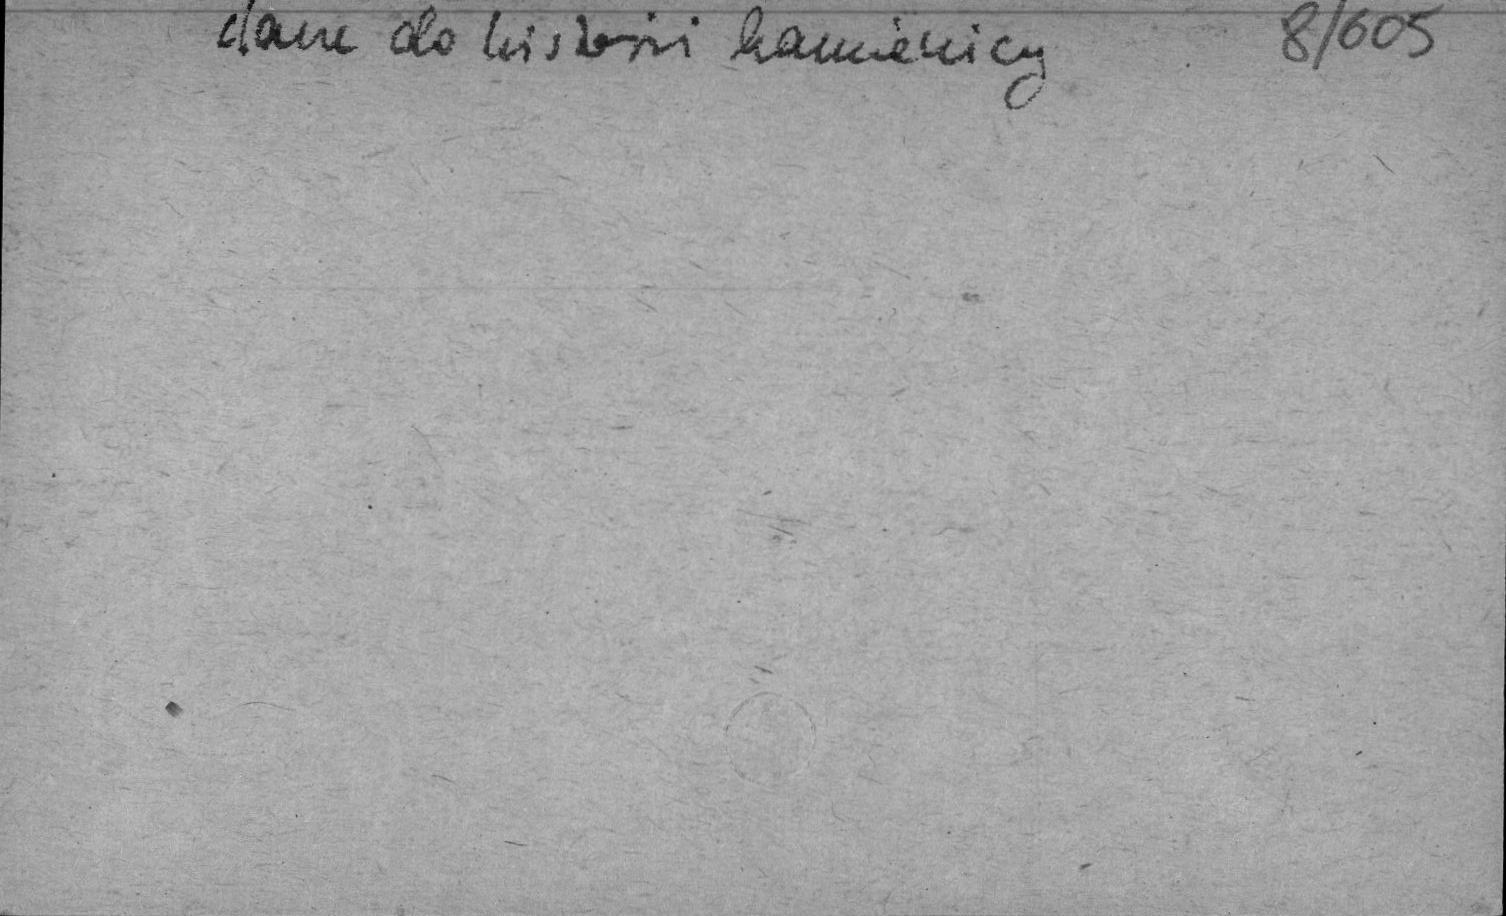 dane do historii kamienicy 8/605